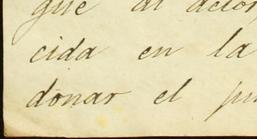 que al actor
cida en la
donar el